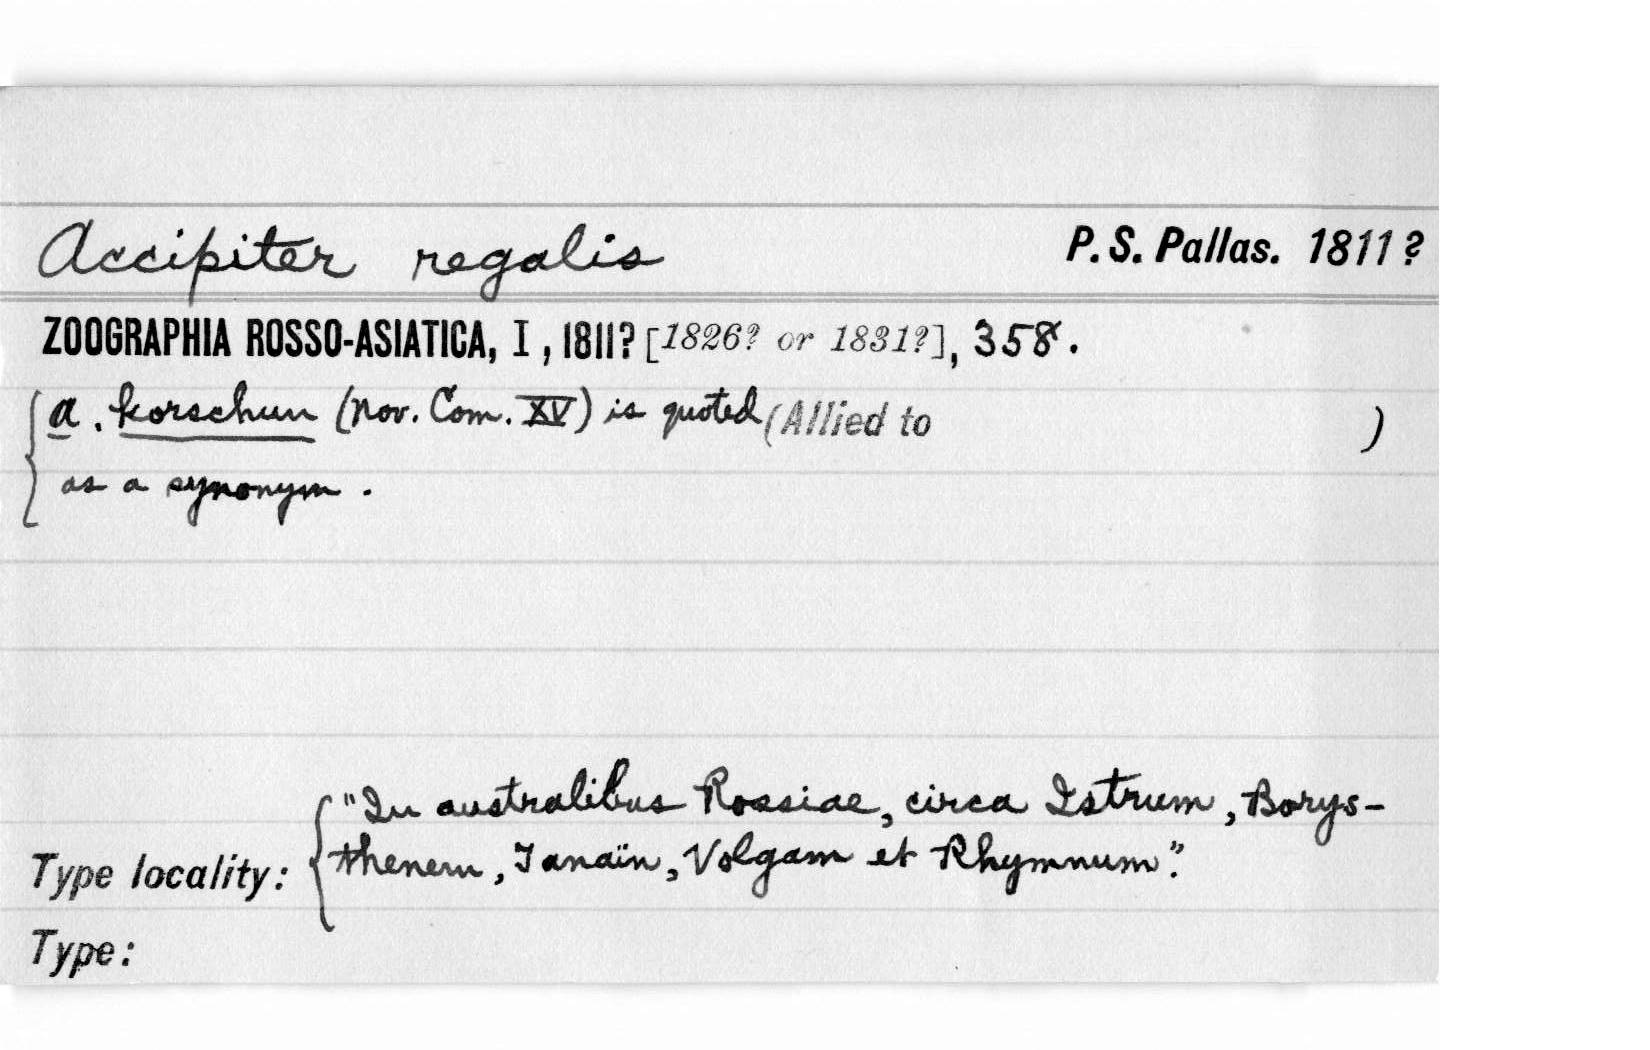 Accipiter regalis P. S. Pallas. 1811?
ZOOGRAPHIA ROSSO-ASIATICA, I, 1811? [1826? or 1831?], 358.
A. korschun (Nov. Com. XV) is quoted (Allied to )
as a synonym.
"In australibus Rossiae, circa Istrum, Borys-
Type locality: thenem, Tanaïn, Volgam et Rhymnum".
Type: